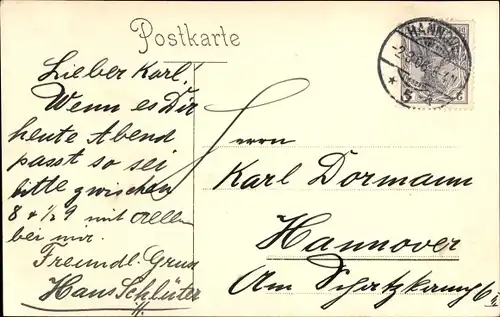 Postkarte
HANNOVER
5
Lieber Karl!
Wenn es Dir
heute Abend
passt so sei
bitte zwischen
8 + ½ 9 mit
bei mir.
Freundl. Gruss
Hans Schlüter
Herrn
Karl Dormann
Hannover
Am